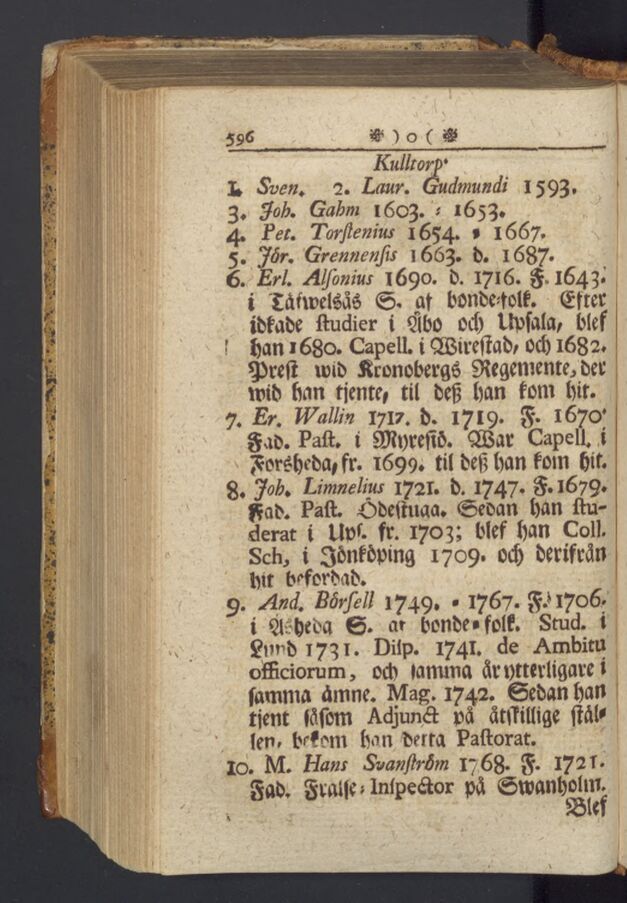 596 ) o (
Kulltorp.
1. Sven. 2. Laur. Gudmundi 1593.
3. Joh. Gahm 1603. - 1653.
4. Pet. Torstenius 1654. - 1667.
5. Jör. Grennensis 1663. d. 1687.
6. Erl. Alsonius 1690. d. 1716. F. 1643.
i Täfwelsås S. af bonde-folk. Efter
idkade studier i Åbo och Upsala, blef
han 1680. Capell. i Wirestad, och 1682.
Prest wid Kronobergs Regemente, der
wid han tjente, til deß han kom hit.
7. Er. Wallin 1717. d. 1719. F. 1670.
Fad. Past. i Myresiö. War Capell. i
Forsheda, fr. 1699. til deß han kom hit.
8. Joh. Limnelius 1721. d. 1747. F. 1679.
Fad. Past. Ödestuga. Sedan han stu-
derat i Ups. fr. 1703; blef han Coll.
Sch, i Jönköping 1709. och derifrån
hit befordad.
9. And. Börsell 1749. - 1767. F. 1706.
i Asheda S. af bonde-folk. Stud. i
Lund 1731. Disp. 1741. de Ambitu
officiorum, och samma år ytterligare i
samma ämne. Mag. 1742. Sedan han
tjent såsom Adjunct på åtskillige stäl-
len, bekom han detta Pastorat.
10. M. Hans Svanström 1768. F. 1721.
Fad. Fralse-Inspector på Swanholm.
Blef